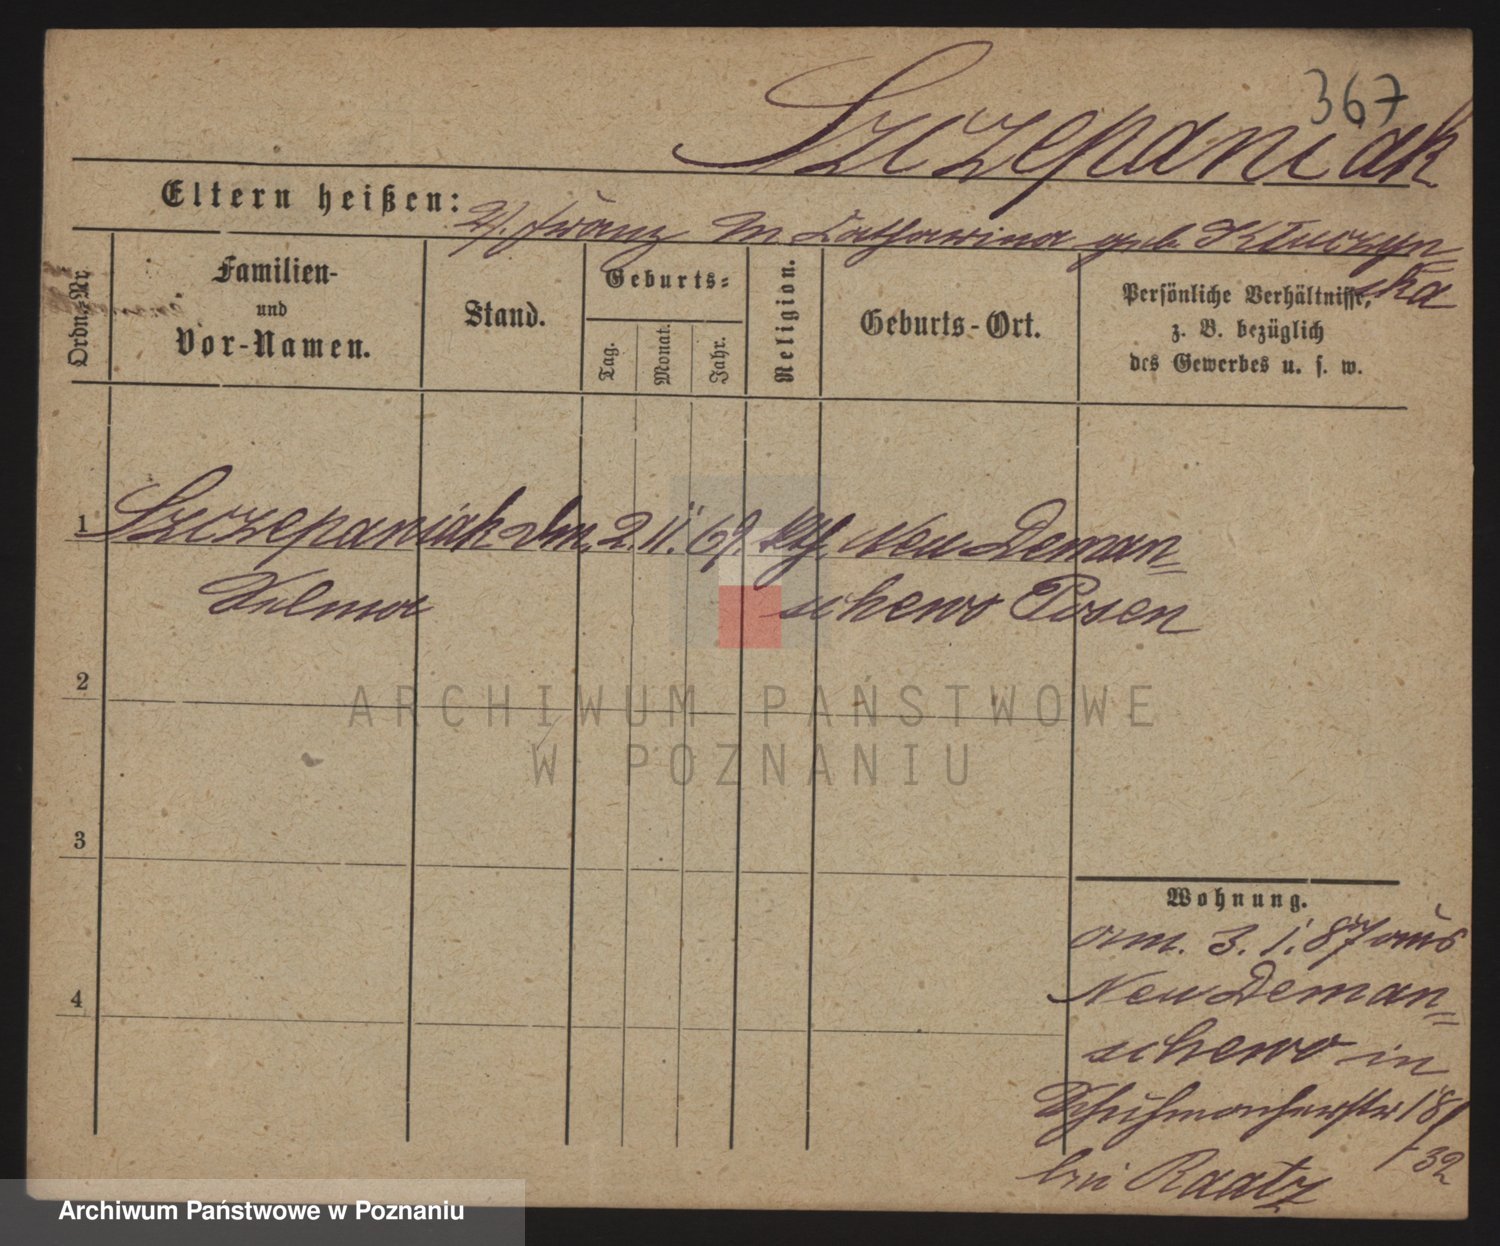 367
Szczepaniak
Eltern heißen:
V. Franz M. Catharina geb. Kluczyn=
ska
Ordn.-Nr.
Familien-
und
Vor-Namen.
Stand.
Geburts-
Tag.
Monat.
Jahr.
Religion.
Geburts-Ort.
Persönliche Verhältnisse,
z. B. bezüglich
des Gewerbes u. s. w.
1
Szczepaniak 2. 11. 69. kth. Neu Deman=
schewo Posen
2
ARCHIWUM PAŃSTWOWE
W POZNANIU
3
Wohnung.
am. 3. 1. 87 aus
Neu Deman=
schewo in
Schuhmacherstr 18/
32
bei Raatz
4
Archiwum Państwowe w Poznaniu